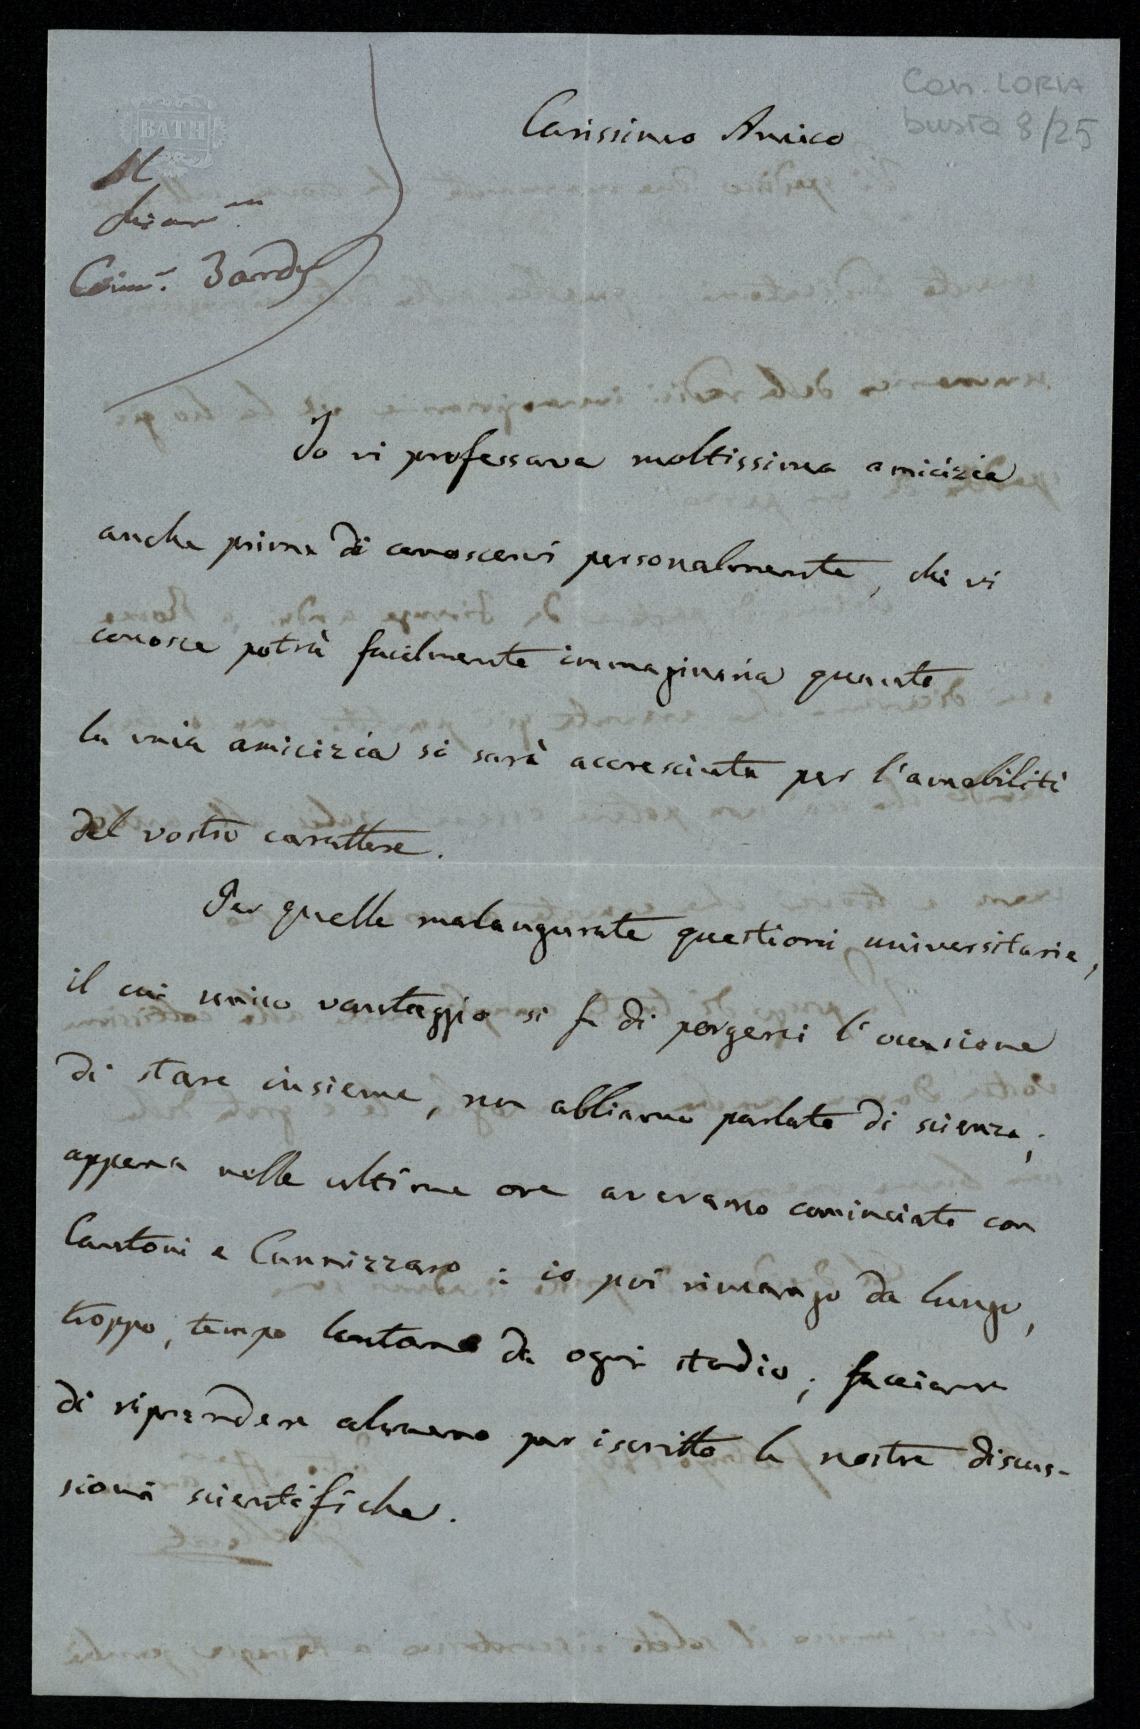 Con. LORIA
busta 8/25
BATH
Al
Chiar.mo
Comm. Tardy
Carissimo Amico
Io vi professava moltissima amicizia
anche prima di conoscervi personalmente, chi vi
conosce potrà facilmente immaginarsi quanto
la mia amicizia si sarà accresciuta per l'amabilità
del vostro carattere.
Per quelle malaugurate questioni universitarie,
il cui unico vantaggio si fu di porgerci l'occasione
di stare insieme, non abbiamo parlato di scienza;
appena nelle ultime ore avevamo cominciato con
Cantoni e Cannizzaro: io poi rimango da lungo,
troppo, tempo lontano da ogni studio; facciamo
di riprendere almeno per iscritto le nostre discus-
sioni scientifiche.